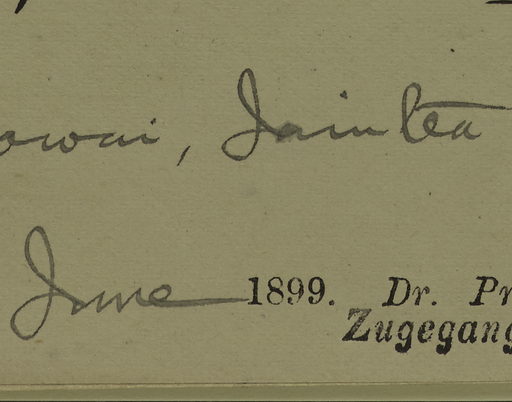 owai, Jaintea
June 1899. Dr. Pr
Zugegang